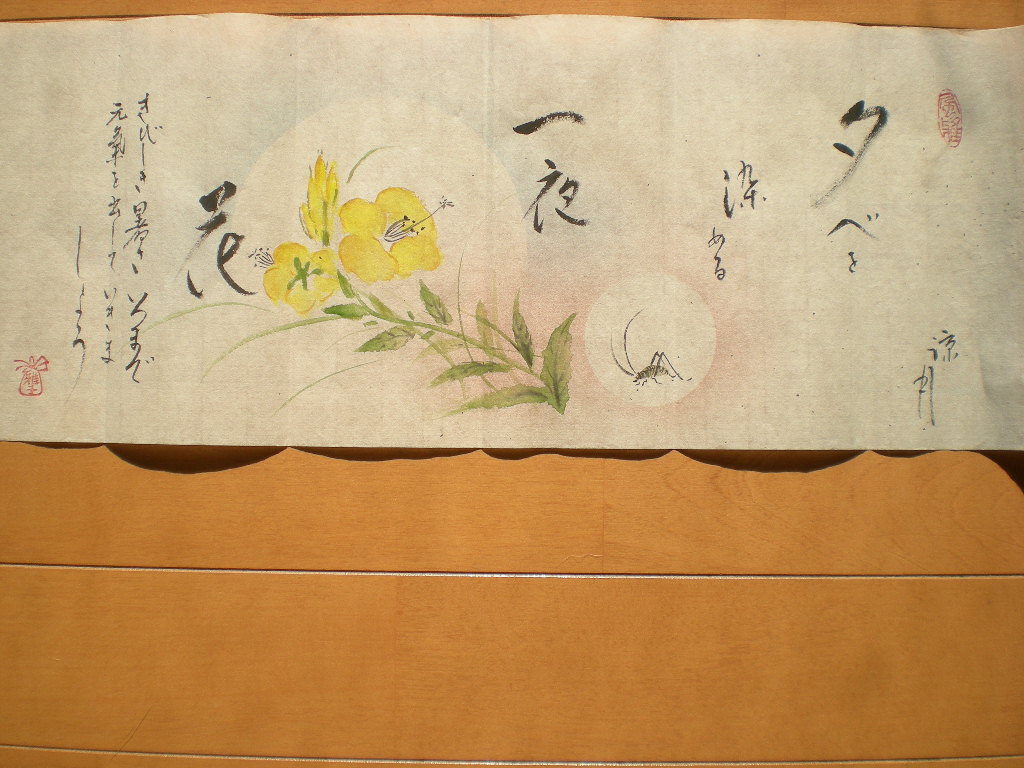 涼月
夕べを
染める
一夜
花
きびしき暑さいつまで
元氣を出していきま
しょう